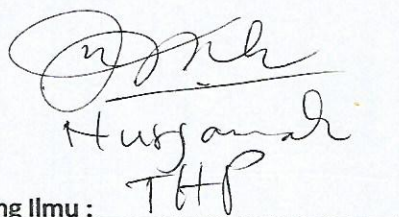 Nurjanah
THP
ng Ilmu :